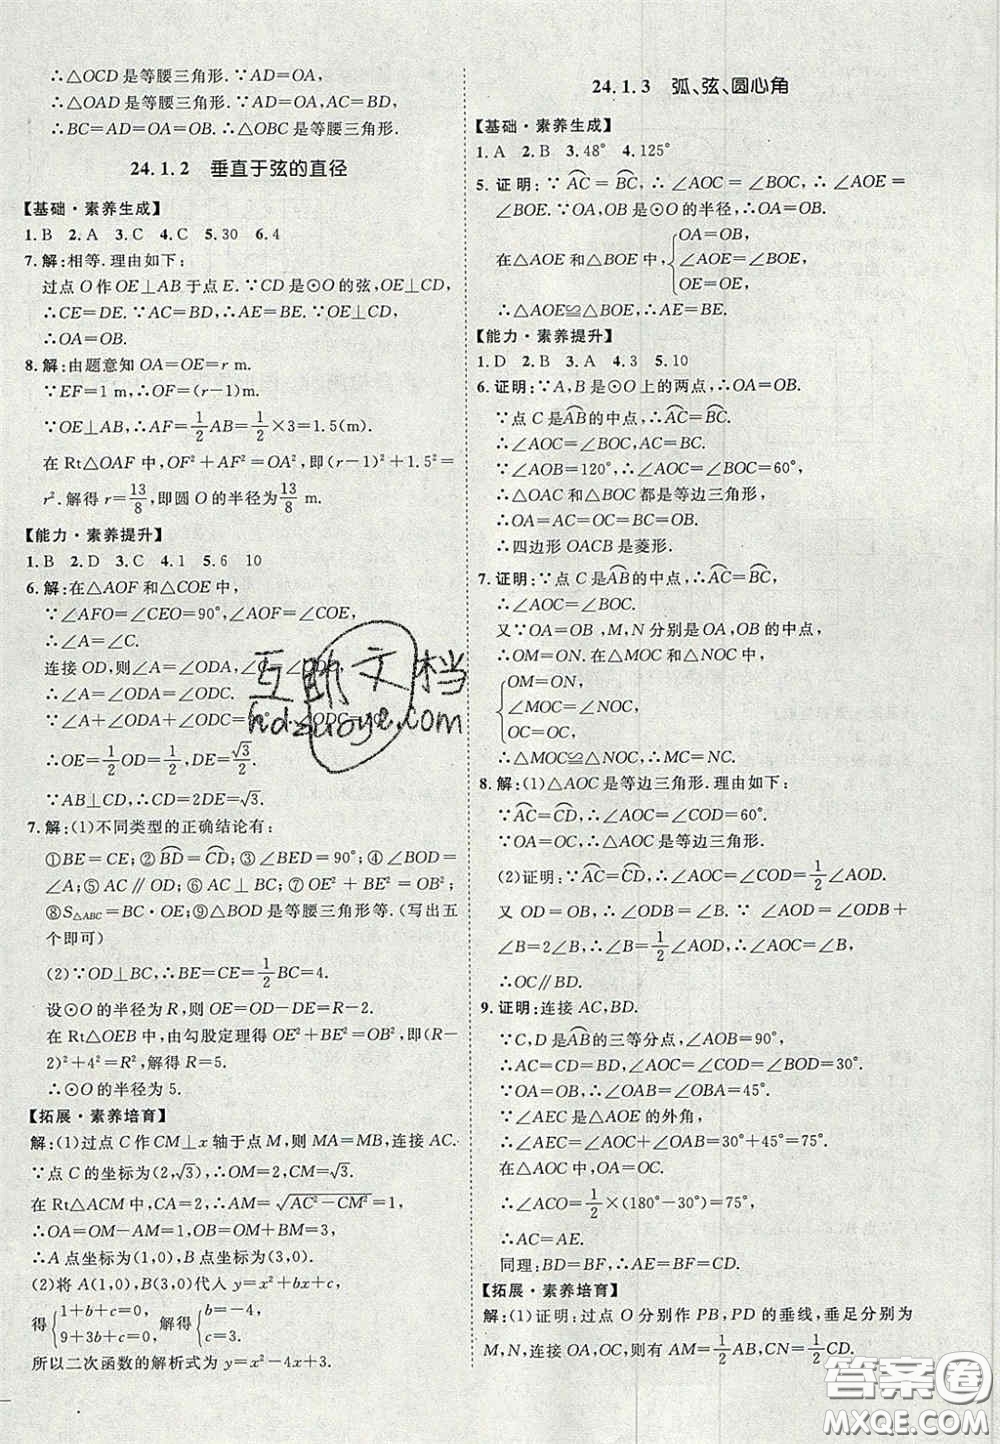 ∴△OCD 是等腰三角形. ∵AD=OA,
∴△OAD 是等腰三角形. ∵AD=OA,AC=BD,
∴BC=AD=OA. ∴△OBC 是等腰三角形.
24.1.2 垂直于弦的直径
【基础·素养生成】
1.B 2.A 3.C 4.C 5.30 6.4
7.解:相等.理由如下:
过点 O 作 OE⊥AB 于点 E. ∵CD 是⊙O 的弦,
∴CE=DE. ∵AC=BD,∴AE=BE. ∵OE⊥AB,
∴OA=OB.
8.解:由题意知 OA=OE=r m.
∵EF=1 m,∴OF=(r-1)m.
∵OE⊥AB,∴AF=1/2AB=1/2×3=1.5(m).
在 Rt△OAF 中,OF²+AF²=OA²,即(r-1)²+1.5²=
r².解得 r=13/8,即圆 O 的半径为13/8 m.
【能力·素养提升】
1.B 2.D 3.C 4.1 5.6 10
6.解:在△AOF 和△COE 中,
∵∠AFO=∠CEO=90°,∠AOF=∠COE,
∴∠A=∠C.
连接 OD,则∠A=∠ODA,∠C=∠ODC,
∴∠A=∠ODA=∠ODC.
∵∠A+∠ODA+∠ODC=90°
∴OE=1/2OD=1/2,DE=√3/2.
∵AB⊥CD,∴CD=2DE=√3.
7.解:(1)不同类型的正确结论有:
①BE=CE;②BD⌒=CD⌒;③∠BED=90°;④∠BOD=
∠A;⑤AC∥OD;⑥AC⊥BC;⑦OE²+BE²=OB²;
⑧S△ABC=BC·OE;⑨△BOD 是等腰三角形等.(写出五
个即可)
(2)∵OD⊥BC,∴BE=CE=1/2BC=4.
设⊙O 的半径为 R,则 OE=OD-DE=R-2.
在 Rt△OEB 中,由勾股定理得 OE²+BE²=OB²,即(R-
2)²+4²=R²,解得 R=5.
∴⊙O 的半径为 5.
【拓展·素养培育】
解:(1)过点 C 作 CM⊥x 轴于点 M,则 MA=MB,连接 AC.
∵点 C 的坐标为(2,√3),∴OM=2,CM=√3.
在 Rt△ACM 中,CA=2,∴AM=√(AC²-CM²)=1,
∴OA=OM-AM=1,OB=OM+BM=3,
∴A 点坐标为(1,0),B 点坐标为(3,0).
(2)将 A(1,0),B(3,0)代入 y=x²+bx+c,
得{1+b+c=0, 9+3b+c=0,解得{b=-4, c=3.
所以二次函数的解析式为 y=x²-4x+3.
24.1.3 弧、弦、圆心角
【基础·素养生成】
1.A 2.B 3.48° 4.125°
5.证明:∵AC⌒=BC⌒,∴∠AOC=∠BOC,∴∠AOE=
∠BOE. ∵OA,OB 是⊙O 的半径,∴OA=OB.
在△AOE 和△BOE 中,{OA=OB, ∠AOE=∠BOE, OE=OE,
∴△AOE≌△BOE,∴AE=BE.
【能力·素养提升】
1.D 2.B 3.A 4.3 5.10
6.证明:∵A,B 是⊙O 上的两点,∴OA=OB.
∵点 C 是AB⌒的中点,∴AC⌒=BC⌒.
∴∠AOC=∠BOC,AC=BC.
∵∠AOB=120°,∴∠AOC=∠BOC=60°,
∴△OAC 和△BOC 都是等边三角形,
∴OA=AC=OC=BC=OB.
∴四边形 OACB 是菱形.
7.证明:∵点 C 是AB⌒的中点,∴AC⌒=BC⌒,
∴∠AOC=∠BOC.
又∵OA=OB,M,N 分别是 OA,OB 的中点,
∴OM=ON.在△MOC 和△NOC 中,
{OM=ON,
∠MOC=∠NOC,
OC=OC,
∴△MOC≌△NOC,∴MC=NC.
8.解:(1)△AOC 是等边三角形.理由如下:
∵AC⌒=CD⌒,∴∠AOC=∠COD=60°.
∵OA=OC,∴△AOC 是等边三角形.
(2)证明:∵AC⌒=CD⌒,∴∠AOC=∠COD=1/2∠AOD.
又 OD=OB,∴∠ODB=∠B,∴∠AOD=∠ODB+
∠B=2∠B,∴∠B=1/2∠AOD,∴∠AOC=∠B,
∴OC∥BD.
9.证明:连接 AC,BD.
∵C,D 是AB⌒的三等分点,∠AOB=90°,
∴AC=CD=BD,∠AOC=∠COD=∠BOD=30°.
∵OA=OB,∴∠OAB=∠OBA=45°.
∵∠AEC 是△AOE 的外角,
∴∠AEC=∠AOC+∠OAB=30°+45°=75°.
在△AOC 中,OA=OC,
∴∠ACO=1/2×(180°-30°)=75°,
∴AC=AE.
同理:BD=BF,∴AE=BF=CD.
【拓展·素养培育】
解:(1)证明:过点 O 分别作 PB,PD 的垂线,垂足分别为
M,N,连接 OA,OC,则有 AM=1/2AB,CN=1/2CD.
互助文档
hdzuoye.com
答案圈
MXQE.COM